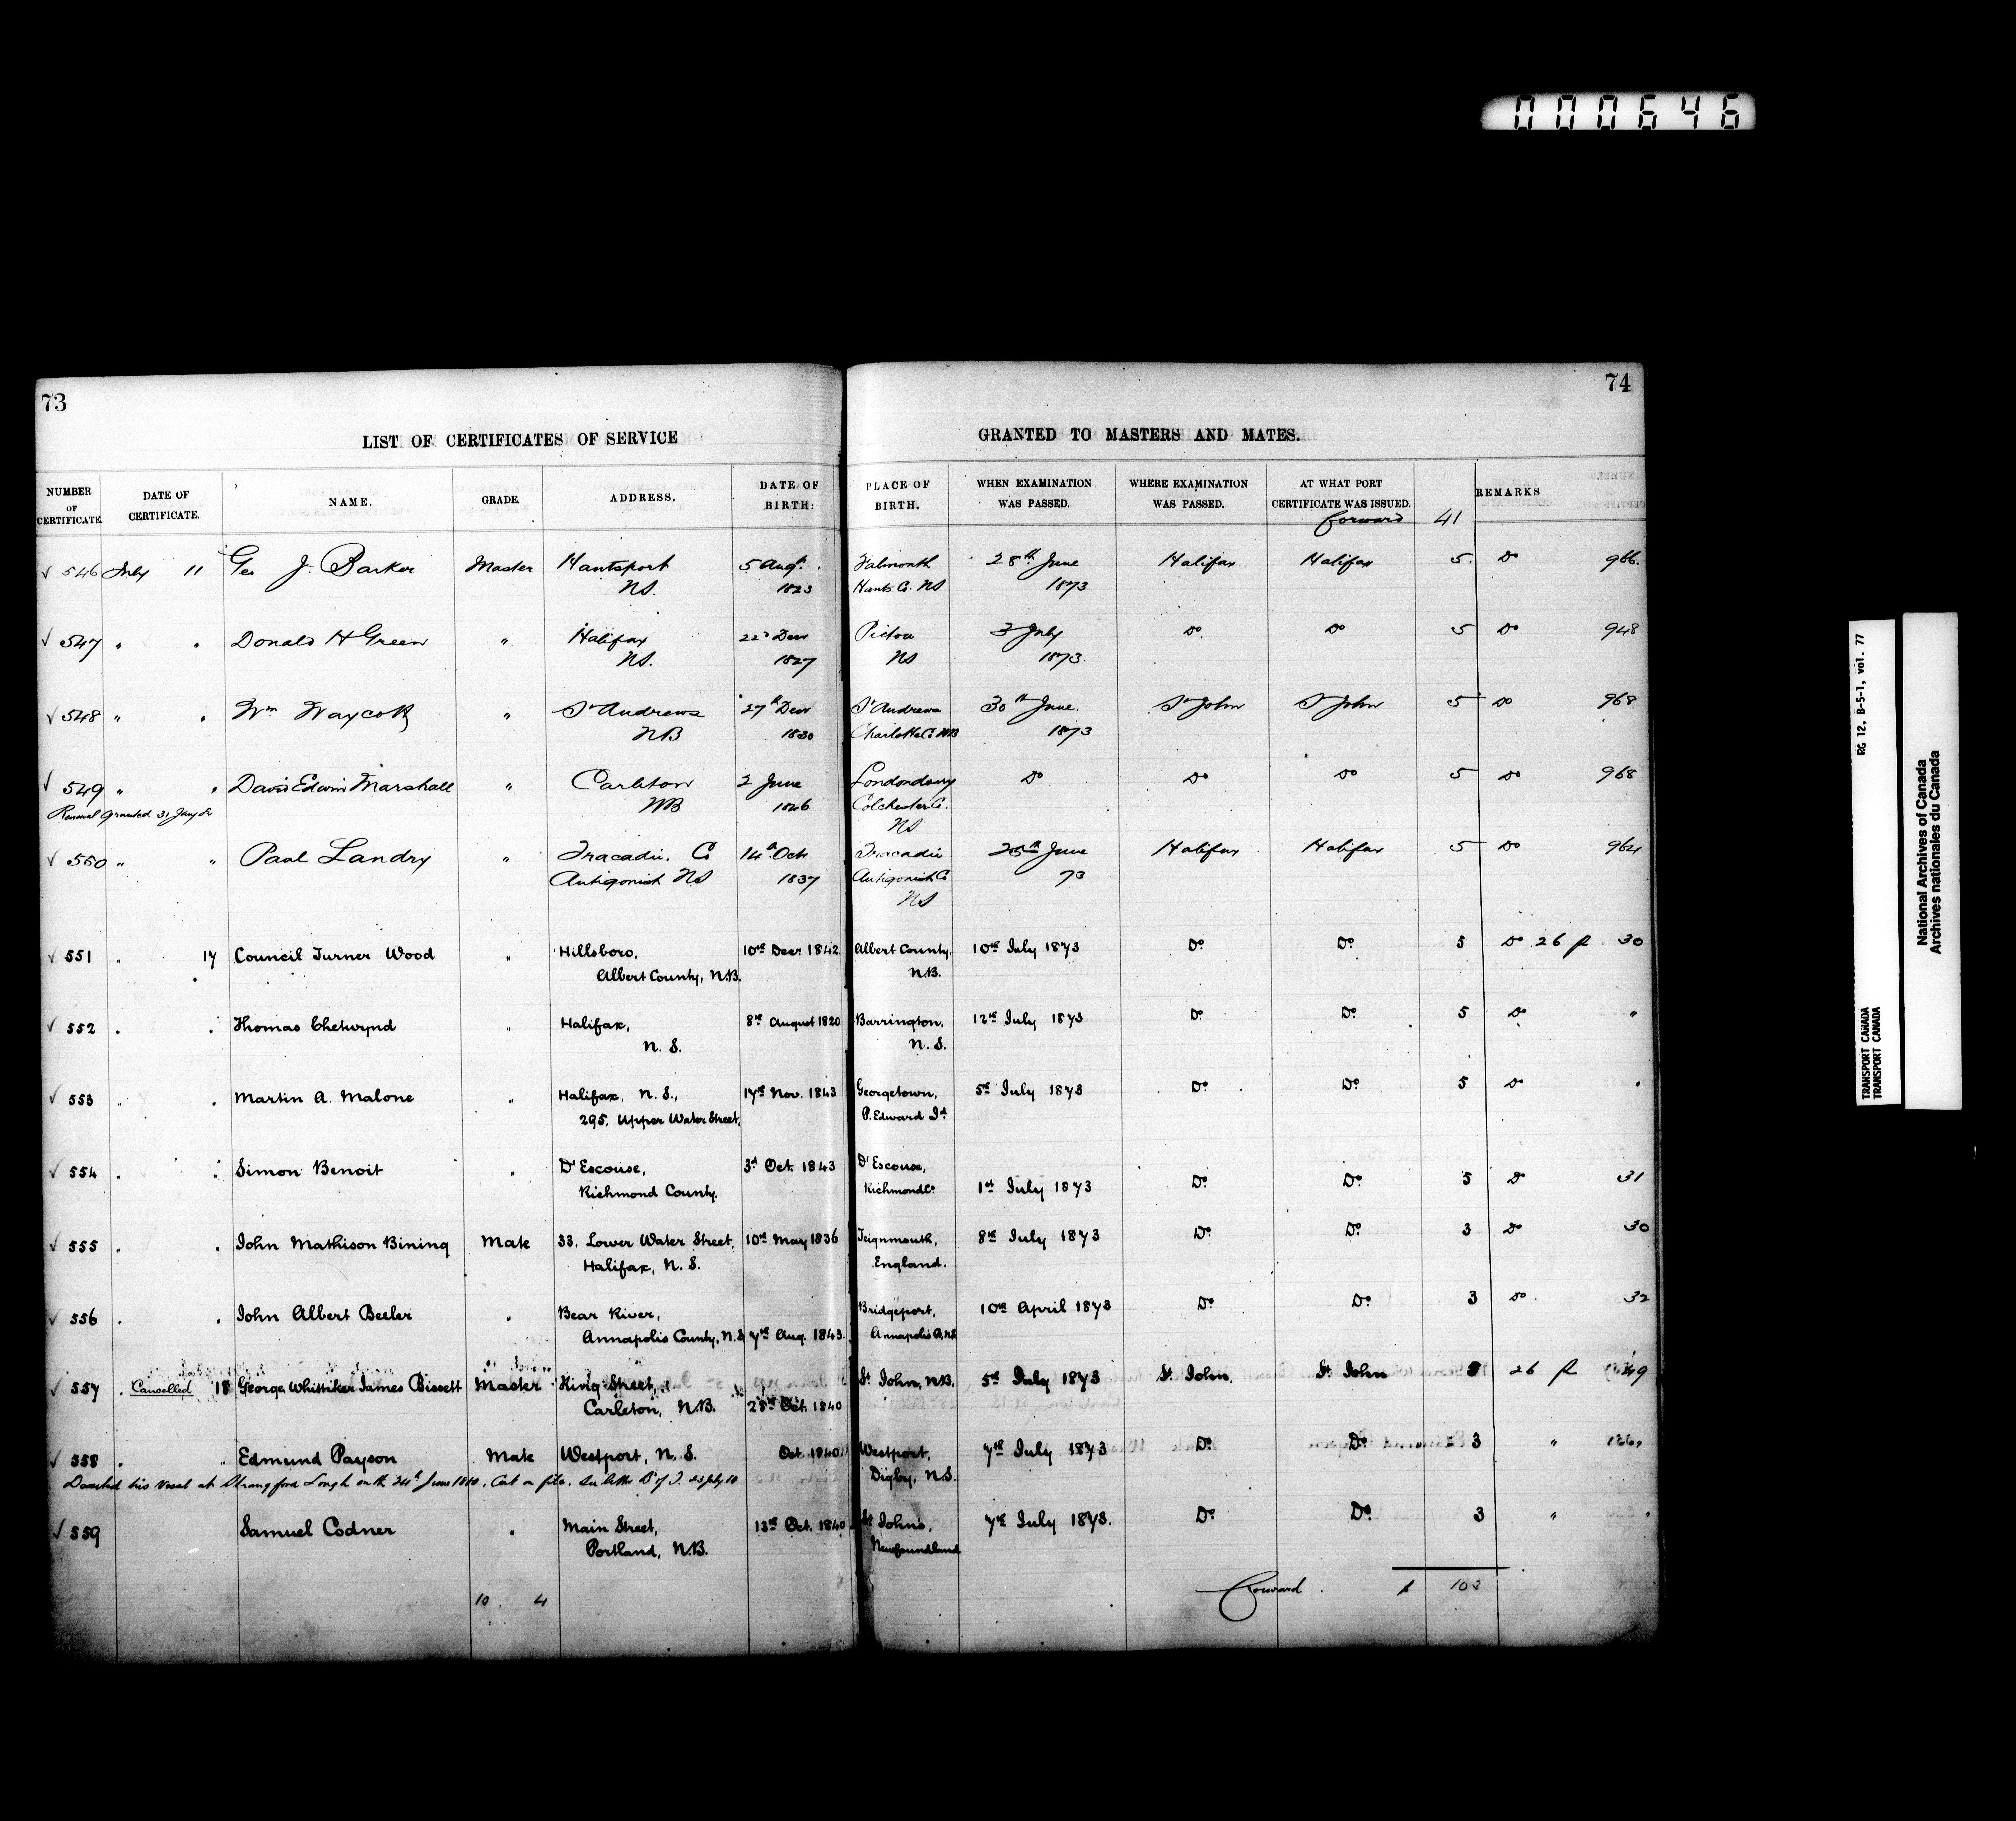 000646
73
74
LIST OF CERTIFICATES OF SERVICE GRANTED TO MASTERS AND MATES.
NUMBER OF CERTIFICATE. DATE OF CERTIFICATE. NAME. GRADE. ADDRESS. DATE OF BIRTH: PLACE OF BIRTH. WHEN EXAMINATION WAS PASSED. WHERE EXAMINATION WAS PASSED. AT WHAT PORT CERTIFICATE WAS ISSUED. REMARKS
forward 41
√ 546 July 11 Geo J. Barker Master Hantsport 5 Augt. Falmouth 28th June Halifax Halifax 5. Do 966.
NS. 1823 Hants Co. NS 1873
√ 547 " " Donald H Green " Halifax 22d Decr Pictou 3 July Do. Do 5 Do 948
NS. 1827 NS 1873.
√ 548 " " Wm Waycott " St Andrews 27th Decr St Andrews 30th June. St John St John 5 Do 968
NB 1830 Charlotte Co NB 1873
√ 549 " " David Edwin Marshall " Carleton 2 June Londonderry Do Do Do 5 Do 968
Renewal granted 31 Jany NB 1846 Colchester Co.
NS
√ 550 " " Paul Landry " Tracadie. Co 14th Oct Tracadie 25th June Halifax Halifax 5 Do 964
Antigonish NS 1837 Antigonish Co 73
NS
√ 551 . 17 Council Turner Wood " Hillsboro, 10th Decr 1842. Albert County, 10th July 1873 Do. Do. 5 Do 26 fl 30
Albert County, N.B. N.B.
√ 552 . . Thomas Chetwynd " Halifax, 8th August 1820 Barrington, 12th July 1873 Do. Do. 5 Do "
N. S. N. S.
√ 553 . . Martin A. Malone " Halifax, N. S., 17th Nov. 1843 Georgetown, 5th July 1873 Do. Do. 5 Do "
295, Upper Water Street, P. Edward Id
√ 554 . . Simon Benoit " D'Escouse, 3d Oct. 1843 D'Escouse,
Richmond County. Richmond Co. 1st July 1873 Do. Do. 5 Do 31
√ 555 . . John Mathison Bining Mate 33, Lower Water Street, 10th May 1836 Teignmouth, 8th July 1873 Do. Do. 3 Do 30
Halifax, N. S. England.
√ 556 . . John Albert Beeler " Bear River, Bridgeport, 10th April 1873 Do. Do. 3 Do. 32
Annapolis County, N.S. 7th Aug. 1843. Annapolis Co, N.S.
√ 557 . Cancelled 18 George Whittiker James Bissett Master King Street, St. John, N.B. 5th July 1873 St. John, St. John 26 fl
Carleton, N.B. 28th Oct. 1840
√ 558 . " Edmund Payson Mate Westport, N. S. Oct. 1840. Westport, 7th July 1873 Do. Do. 3 "
Deserted his vessel at Strangford Lough on the 24th June 1880. Cert on file. See letter B of T. 23 July 80 Digby, N.S.
√ 559 Samuel Codner " Main Street, 13th Oct. 1840 St Johns, 7th July 1873. Do. Do. 3 " "
Portland, N.B. Newfoundland
10 4 Forward $ 103
RG 12, B-5-1, vol. 77
TRANSPORT CANADA
TRANSPORT CANADA
National Archives of Canada
Archives nationales du Canada